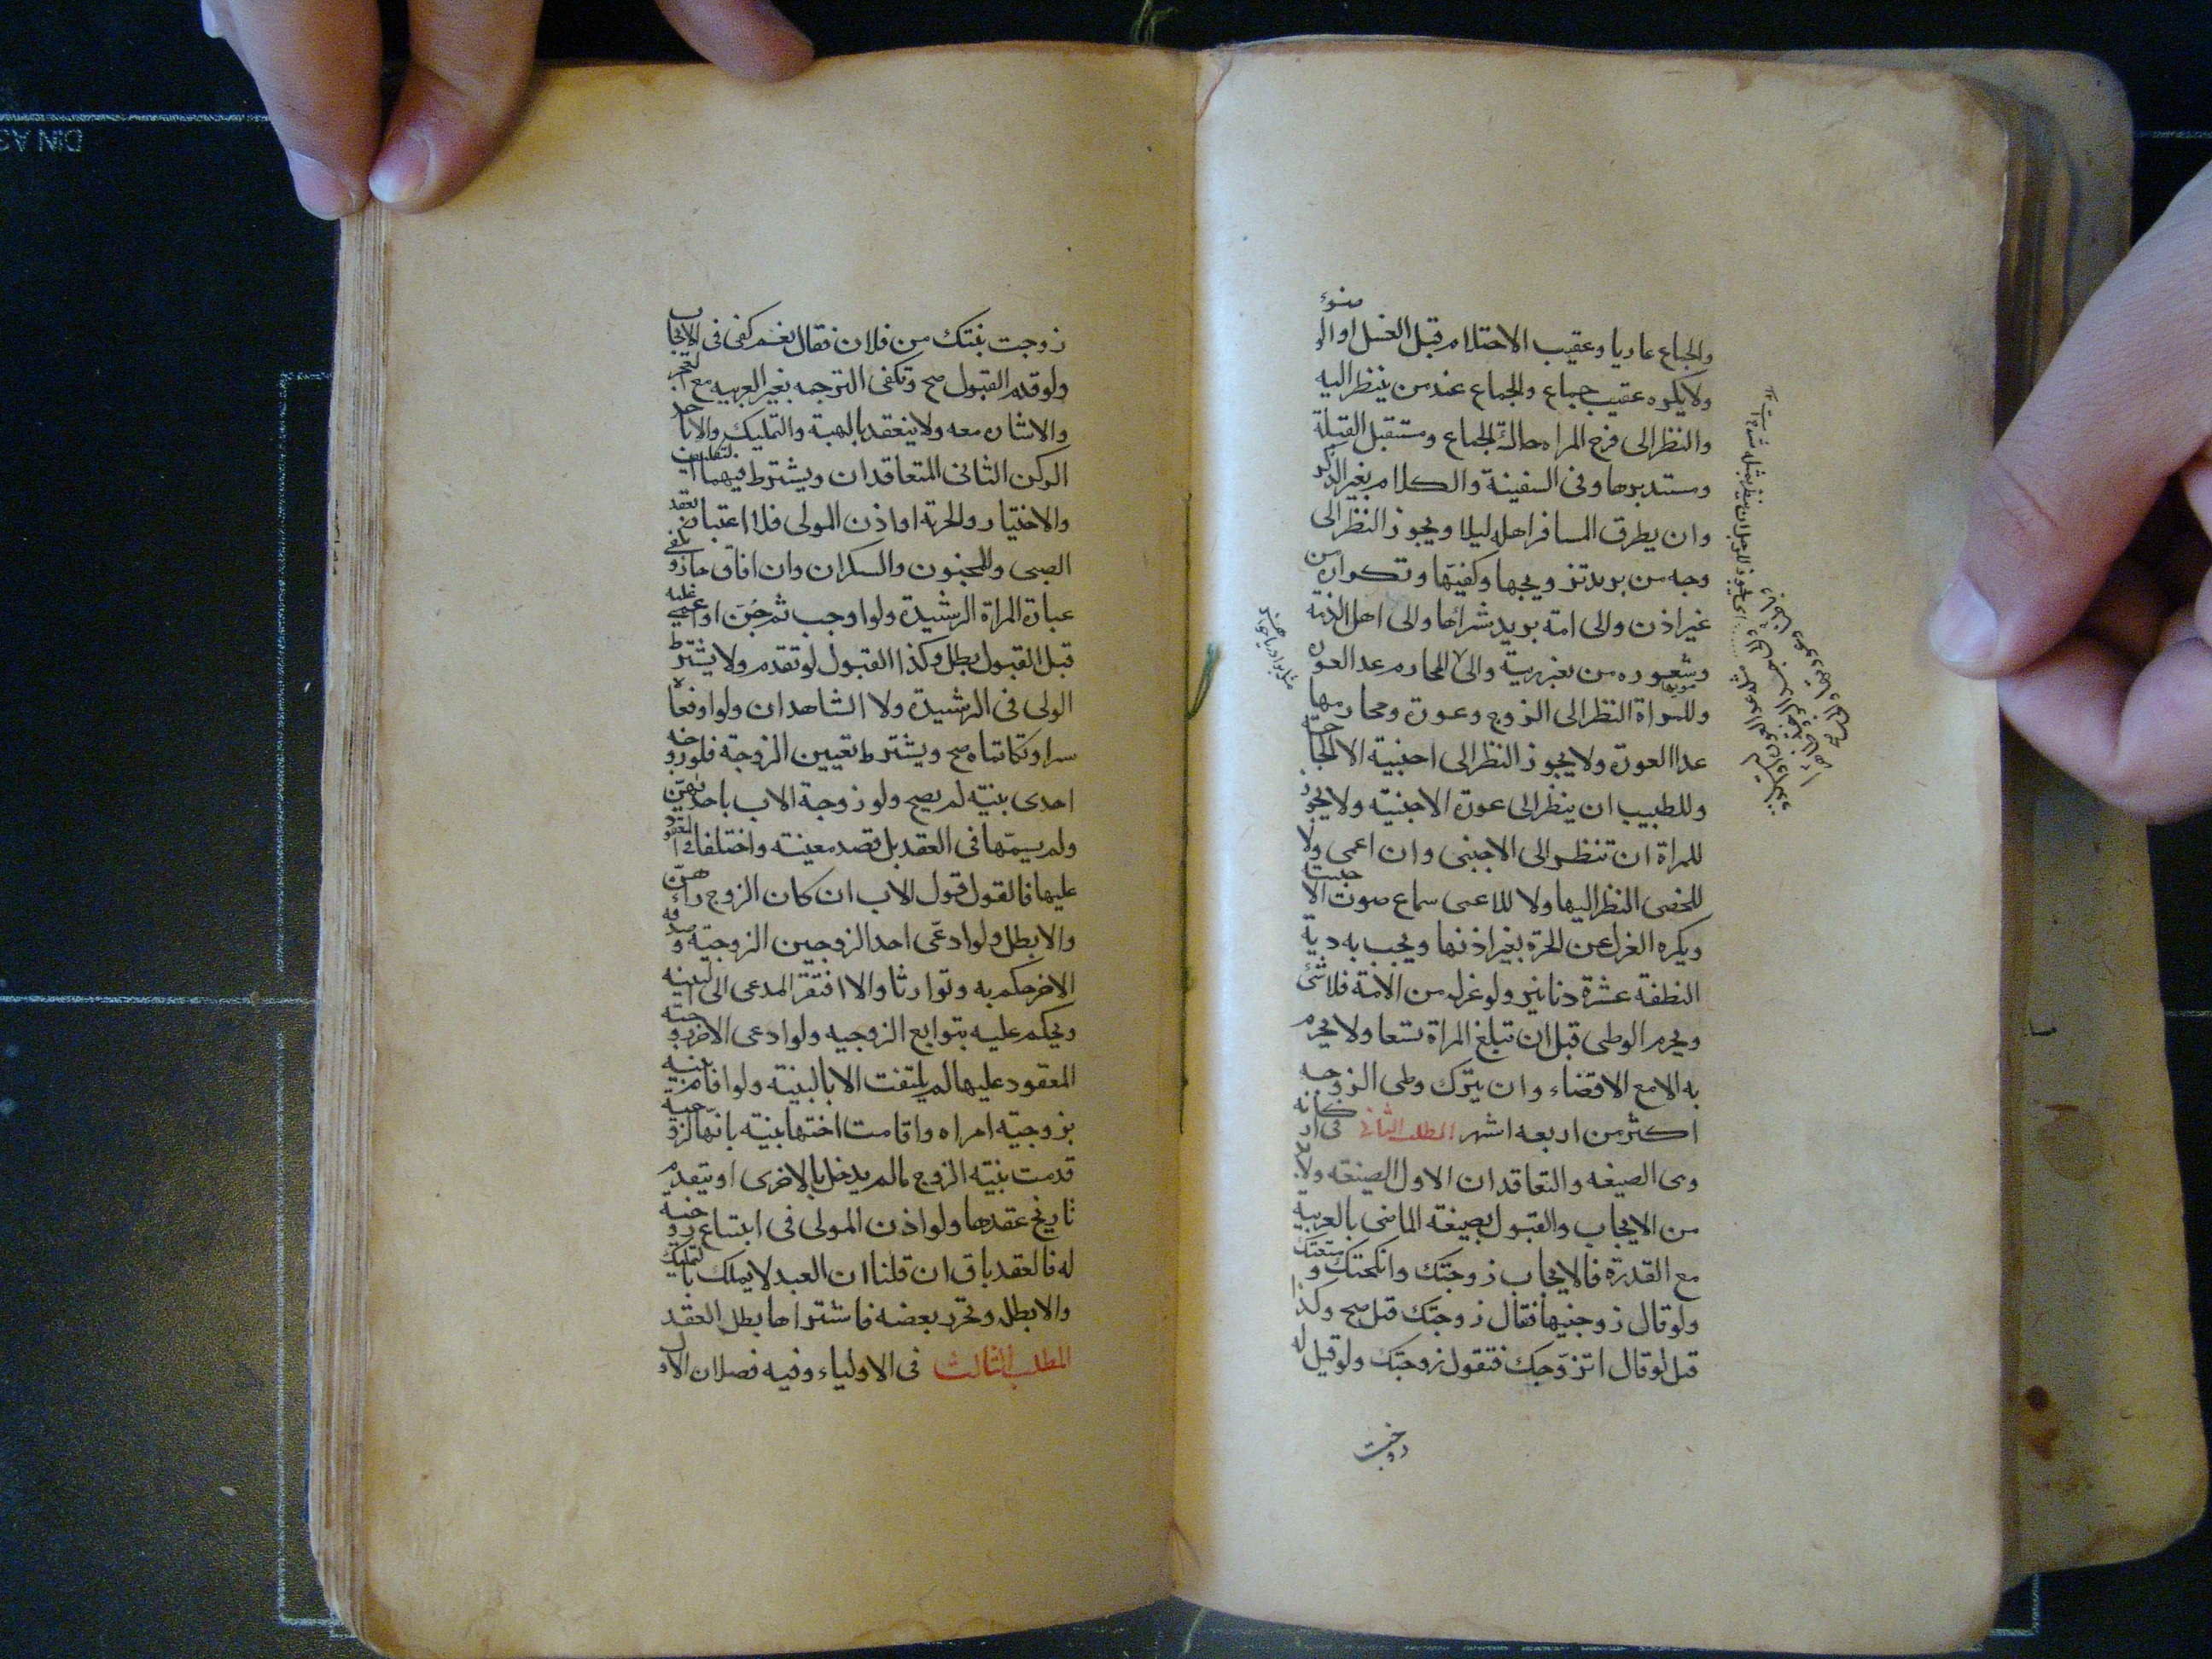 والجماع عاريا وعقيب الاحتلام قبل الغسل او الوضوء
ولا يكره عقيب جماع والجماع عند من ينظر اليه
والنظر الى فرج المراه حالة الجماع ومستقبل القبلة
ومستدبرها وفى السفينة والكلام بغير الذكر
وان يطرق المسافر اهله ليلا ويجوز النظر الى
وجه من يريد تزويجها وكفيها وتكراره من
غير اذن والى امة يريد شرائها والى اهل الذمة
وشعورهن بغير ريبة والى المحارم عدا العورة
وللمراة النظر الى الزوج وعورة ومحارمها
عدا العورة ولا يجوز النظر الى اجنبية الا لحاجة
وللطبيب ان ينظر الى عورة الاجنبية ولا يجوز
للمراة ان تنظر الى الاجنبى وان اعمى ولا
للخصى النظر اليها ولا للاعمى سماع صوت الاجنبية
ويكره العزل عن الحرة بغير اذنها ويجب به دية
النطفة عشرة دنانير ولو عزل من الامة فلا شئ
ويحرم الوطى قبل ان تبلغ المراة تسعا ولا يحرم
به الا مع الافضاء وان يترك وطى الزوجه
اكثر من اربعه اشهر المطلب الثانى فى اركانه
وهى الصيغه والتعاقدان الاول الصيغه ولابد
من الايجاب والقبول بصيغة الماضى بالعربية
مع القدرة فالايجاب زوجتك وانكحتك ومتعتك
ولو قال زوجنيها فقال زوجتك قيل صح وكذا
قيل لو قال اتزوجك فتقول زوجتك ولو قيل له
زوجت
زوجت بنتك من فلان فقال نعم كفى فى الايجاب
ولو قدم القبول صح وتكفى الترجمه بغير العربيه مع العجز
والاشاره معه ولا ينعقد بالهبة والتمليك والاباحه
الركن الثانى المتعاقدان ويشترط فيهما التكليف
والاختيار والحرية او اذن المولى فلا اعتبار بعقد
الصبى والمجنون والسكران وان افاق
عبارة المراة الرشيدة ولو اوجب ثم جن او اغمى عليه
قبل القبول بطل وكذا القبول لو تقدم ولا يشترط
الولى فى الرشيدة ولا الشاهدان ولو اوقعاه
سرا وتكاتماه صح ويشترط تعيين الزوجة فلو زوجه
احدى بنتيه لم يصح ولو زوجة الاب باحديهن
ولم يسمها فى العقد بل قصد معينته واختلفا فى المعقود
عليها فالقول قول الاب ان كان الزوج رآهن
والا بطل ولو ادعى احد الزوجين الزوجية وصدقه
الاخر حكم به وتوارثا والا افتقر المدعى الى البينه
ويحكم عليه بتوابع الزوجيه ولو ادعى الاخر زوجية
المعقود عليها لم يلتفت الا بالبينة ولو اقام بينه
بزوجية امراه واقامت اختها بينه بانها الزوجية
قدمت بنيته الزوج مالم يدخل بالاخرى او يتقدم
تاريخ عقدها ولو اذن المولى فى ابتياع زوجته
له فالعقد باق ان قلنا ان العبد لا يملك بالتمليك
والا بطل ولو تحرر بعضه فاشتراها بطل العقد
المطلب الثالث فى الاولياء وفيه فصلان الاول